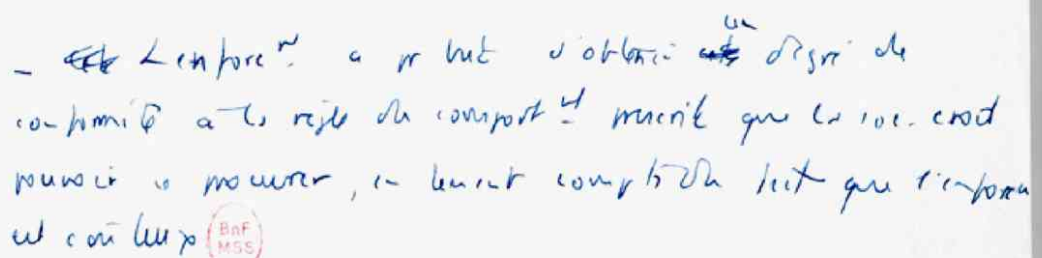 - L'enforc^nt a pr but d'obtenir un degré de
conformité a la règle du comport^nt prescrit que la soc. croit
pouvoir se procurer, en tenant compte du fait que l'enforc
est coûteux
BnF
MSS